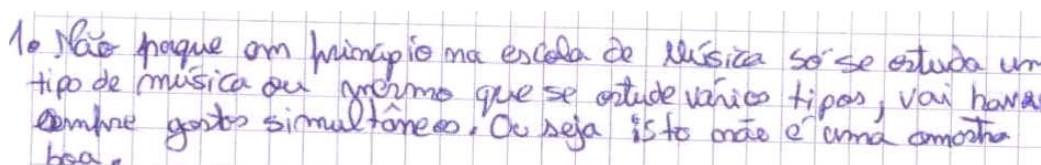 1. Não porque em principio na escola de Música só se estuda um
tipo de música ou mesmo que se estude vários tipos, vai haver
sempre gostos simultâneos. Ou seja isto não é uma amostra
boa.